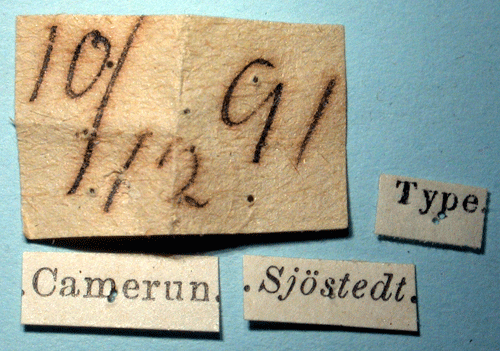 10/12 91
Type.
.Camerun.
.Sjöstedt.